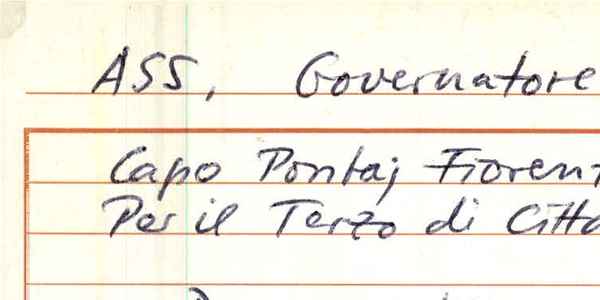 ASS, Governatore
Capo Pontaj Fioren
Per il Terzo di Citta